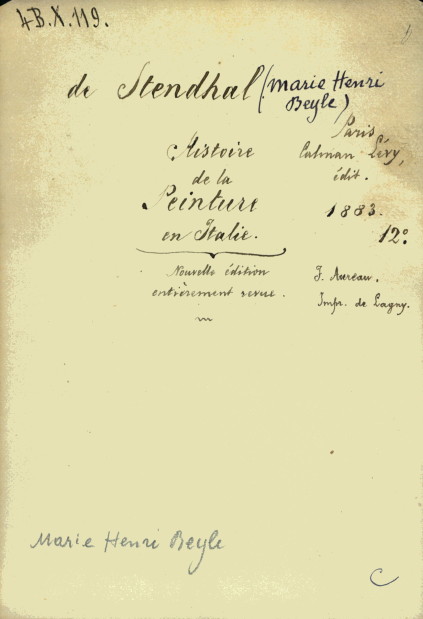 4B.X.119.
de Stendhal (Marie Henri
Beyle)
Histoire
de la
Peinture
en Italie.
Nouvelle édition
entièrement revue.
Paris
Calman Lévy,
édit.
1883.
12º
F. Aureau.
Impr. de Lagny.
Marie Henri Beyle
C